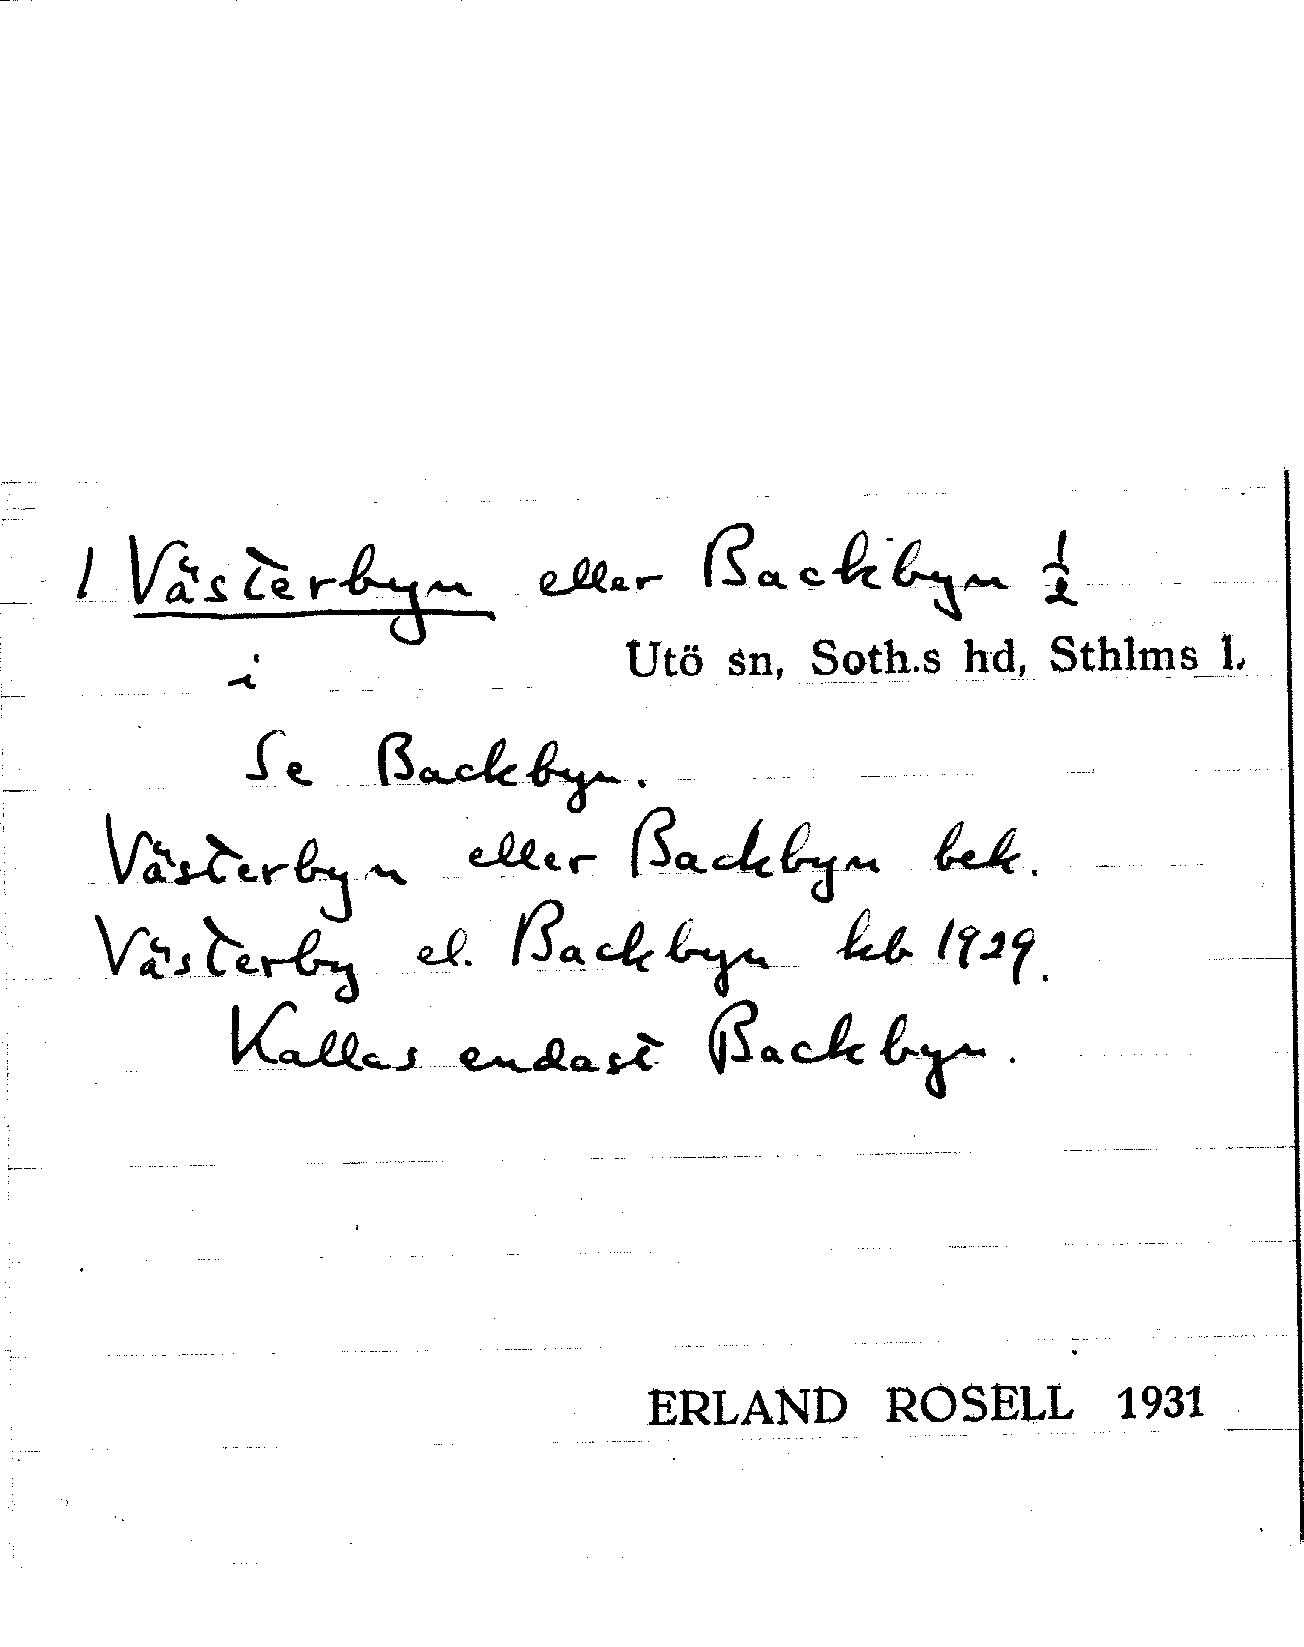 1 Västerbyn eller Backbyn ½
i Utö sn, Soth.s hd, Sthlms l.
Se Backbyn.
Västerbyn eller Backbyn bek.
Västerby el. Backbyn kb 1929.
Kallas endast Backbyn.
ERLAND ROSELL 1931